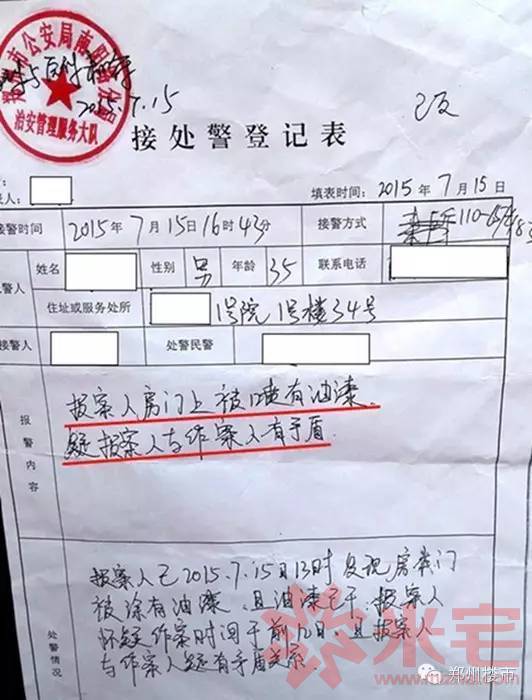 市公安局南阳
治安管理服务大队
2015.7.15
接处警登记表
填表时间：2015年7月15日
接警时间 2015年7月15日16时43分 接警方式 110
姓名 性别 男 年龄 35 联系电话
警人
住址或服务处所 1号院1号楼34号
接警人 处警民警
报警内容
报案人房门上被喷有油漆.
疑报案人与作案人有矛盾.
处警情况
报案人已2015.7.15日13时发现房举门
被涂有油漆，且油漆已干，报案人
怀疑作案时间于前几日，且报案人
与作案人疑有矛盾关系.
米宅
mzhai.com
郑州楼市